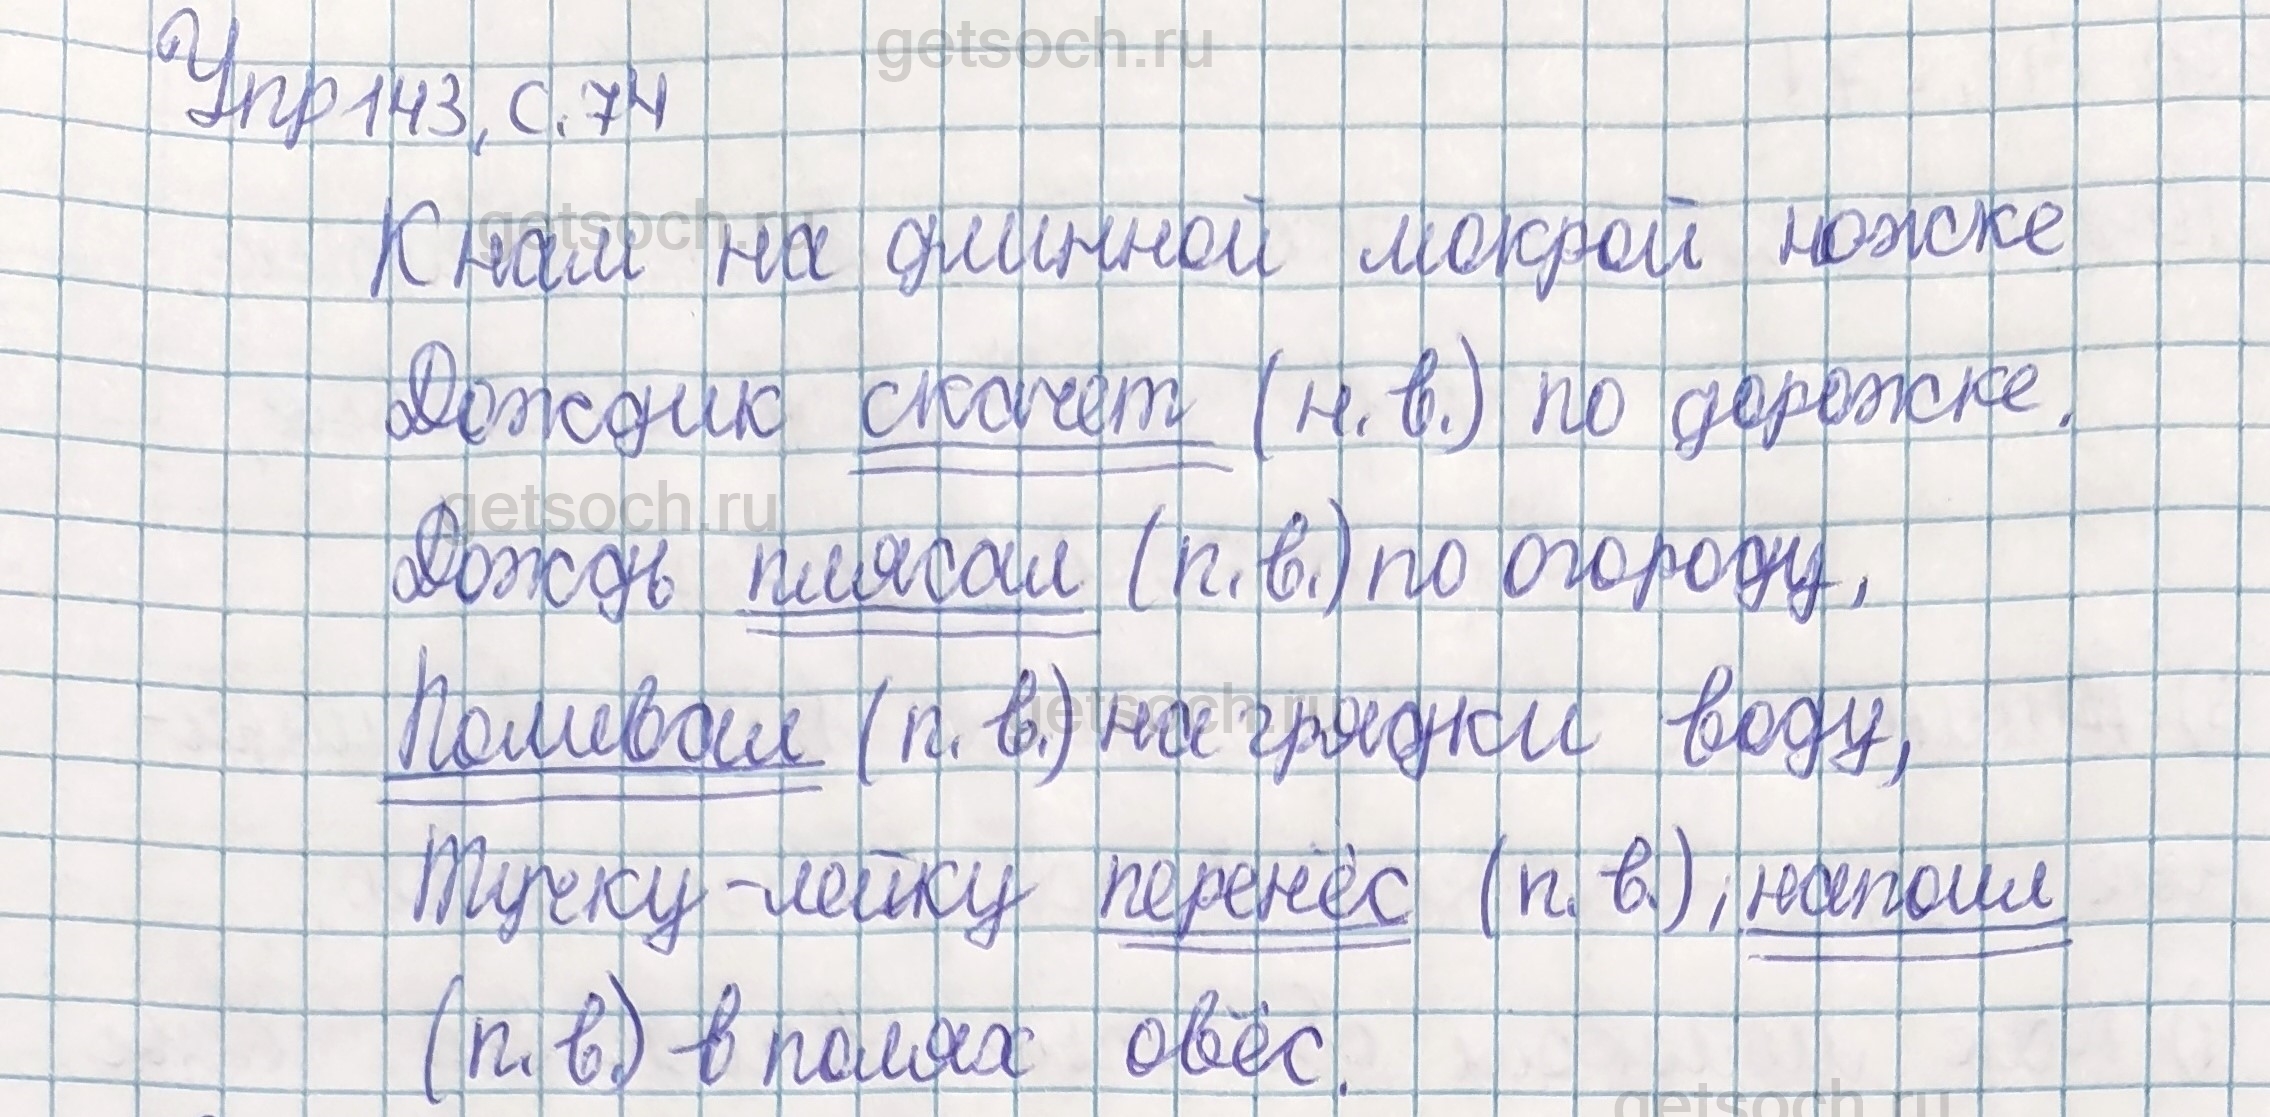 getsoch.ru
Упр 143, с. 74
getsoch.ru
К нам на длинной мокрой ножке
Дождик скачет (н. в.) по дорожке.
getsoch.ru
Дождь плясал (п. в.) по огороду,
getsoch.ru
Поливал (п. в.) на грядки воду,
Тучку-лейку перенёс (п. в.), напоил
(п. в.) в полях овёс.
getsoch.ru